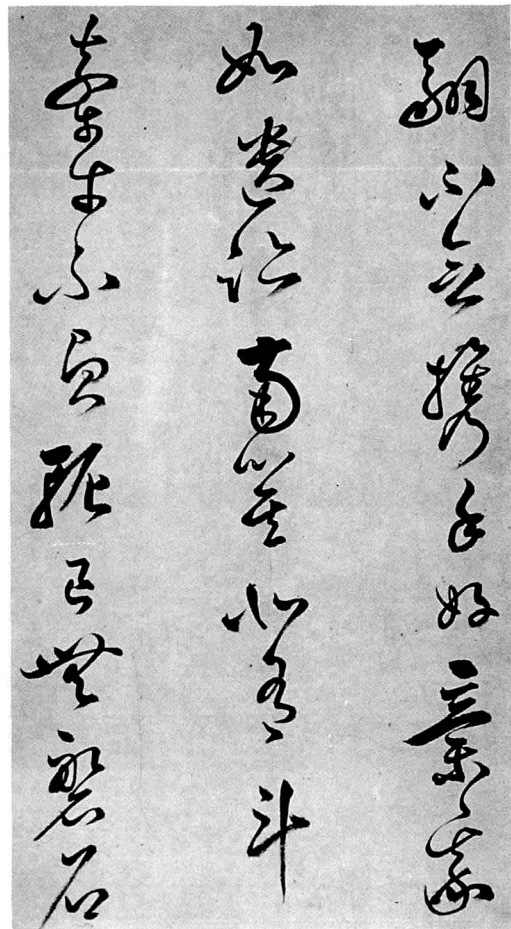 翮不念携手好棄我
如遺跡南箕北有斗
牽牛不負軛良無磐石